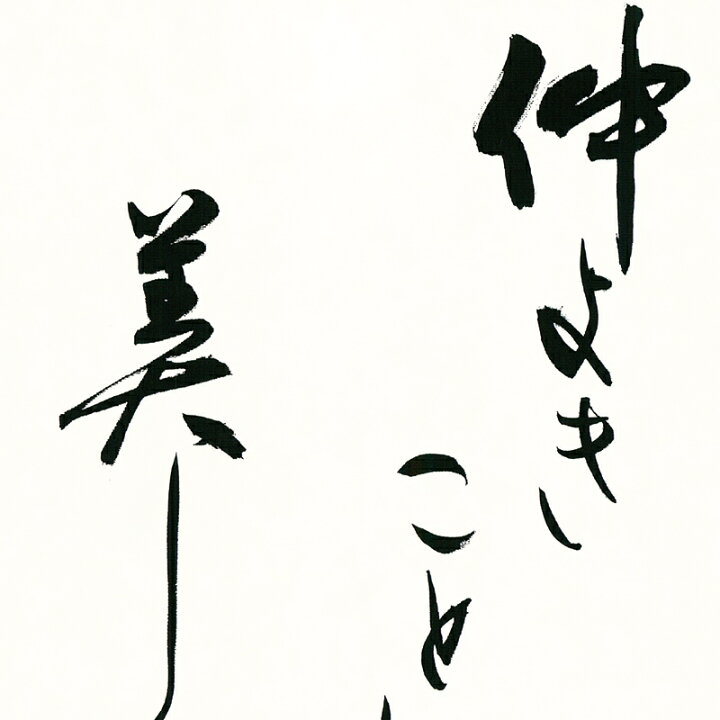 仲よき
こと
美し